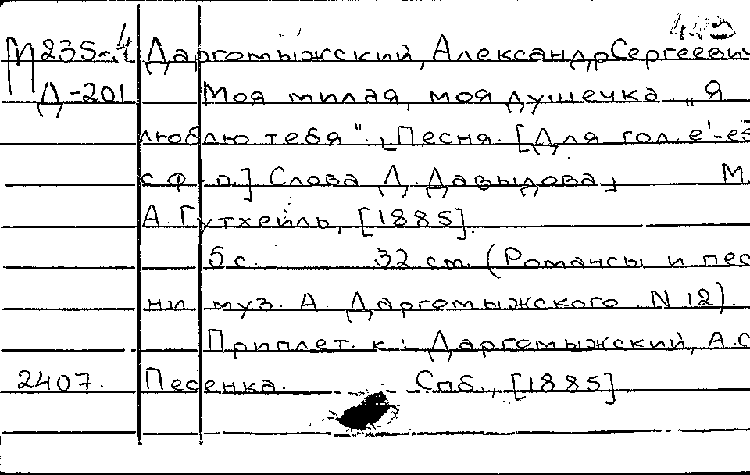 М235-4 Даргомыжский, Александр Сергееви
Д-201 Моя милая, моя душечка „Я
люблю тебя". Песня. [Для гол. e'-e²
с ф.-п.] Слова Д. Давыдова, М.
А. Гутхейль, [1885].
5 с. 32 см. (Романсы и пес
ни муз. А. Даргомыжского. N 12)
Приплет. к: Даргомыжский, А.С
2407. Песенка. Спб., [1885]